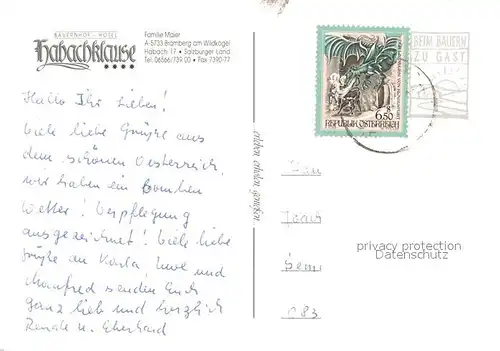 BAUERNHOF - HOTEL
Habachklause
★★★★
Familie Maier
A-5733 Bramberg am Wildkogel
Habach 17 • Salzburger Land
Tel. 06566/739 00 • Fax 7390-77
Hallo Ihr Lieben!
Viele liebe Grüße aus
dem schönen Oesterreich,
wir haben ein Bomben
Wetter! Verpflegung
ausgezeichnet! Viele liebe
Grüße an Karla, Uwe und
Manfred senden Euch
ganz lieb und herzlich
Renate u. Eberhard
erleben erholen genießen
S
6.50
REPUBLIK ÖSTERREICH
BEIM BAUERN
ZU GAST
privacy protection
Datenschutz